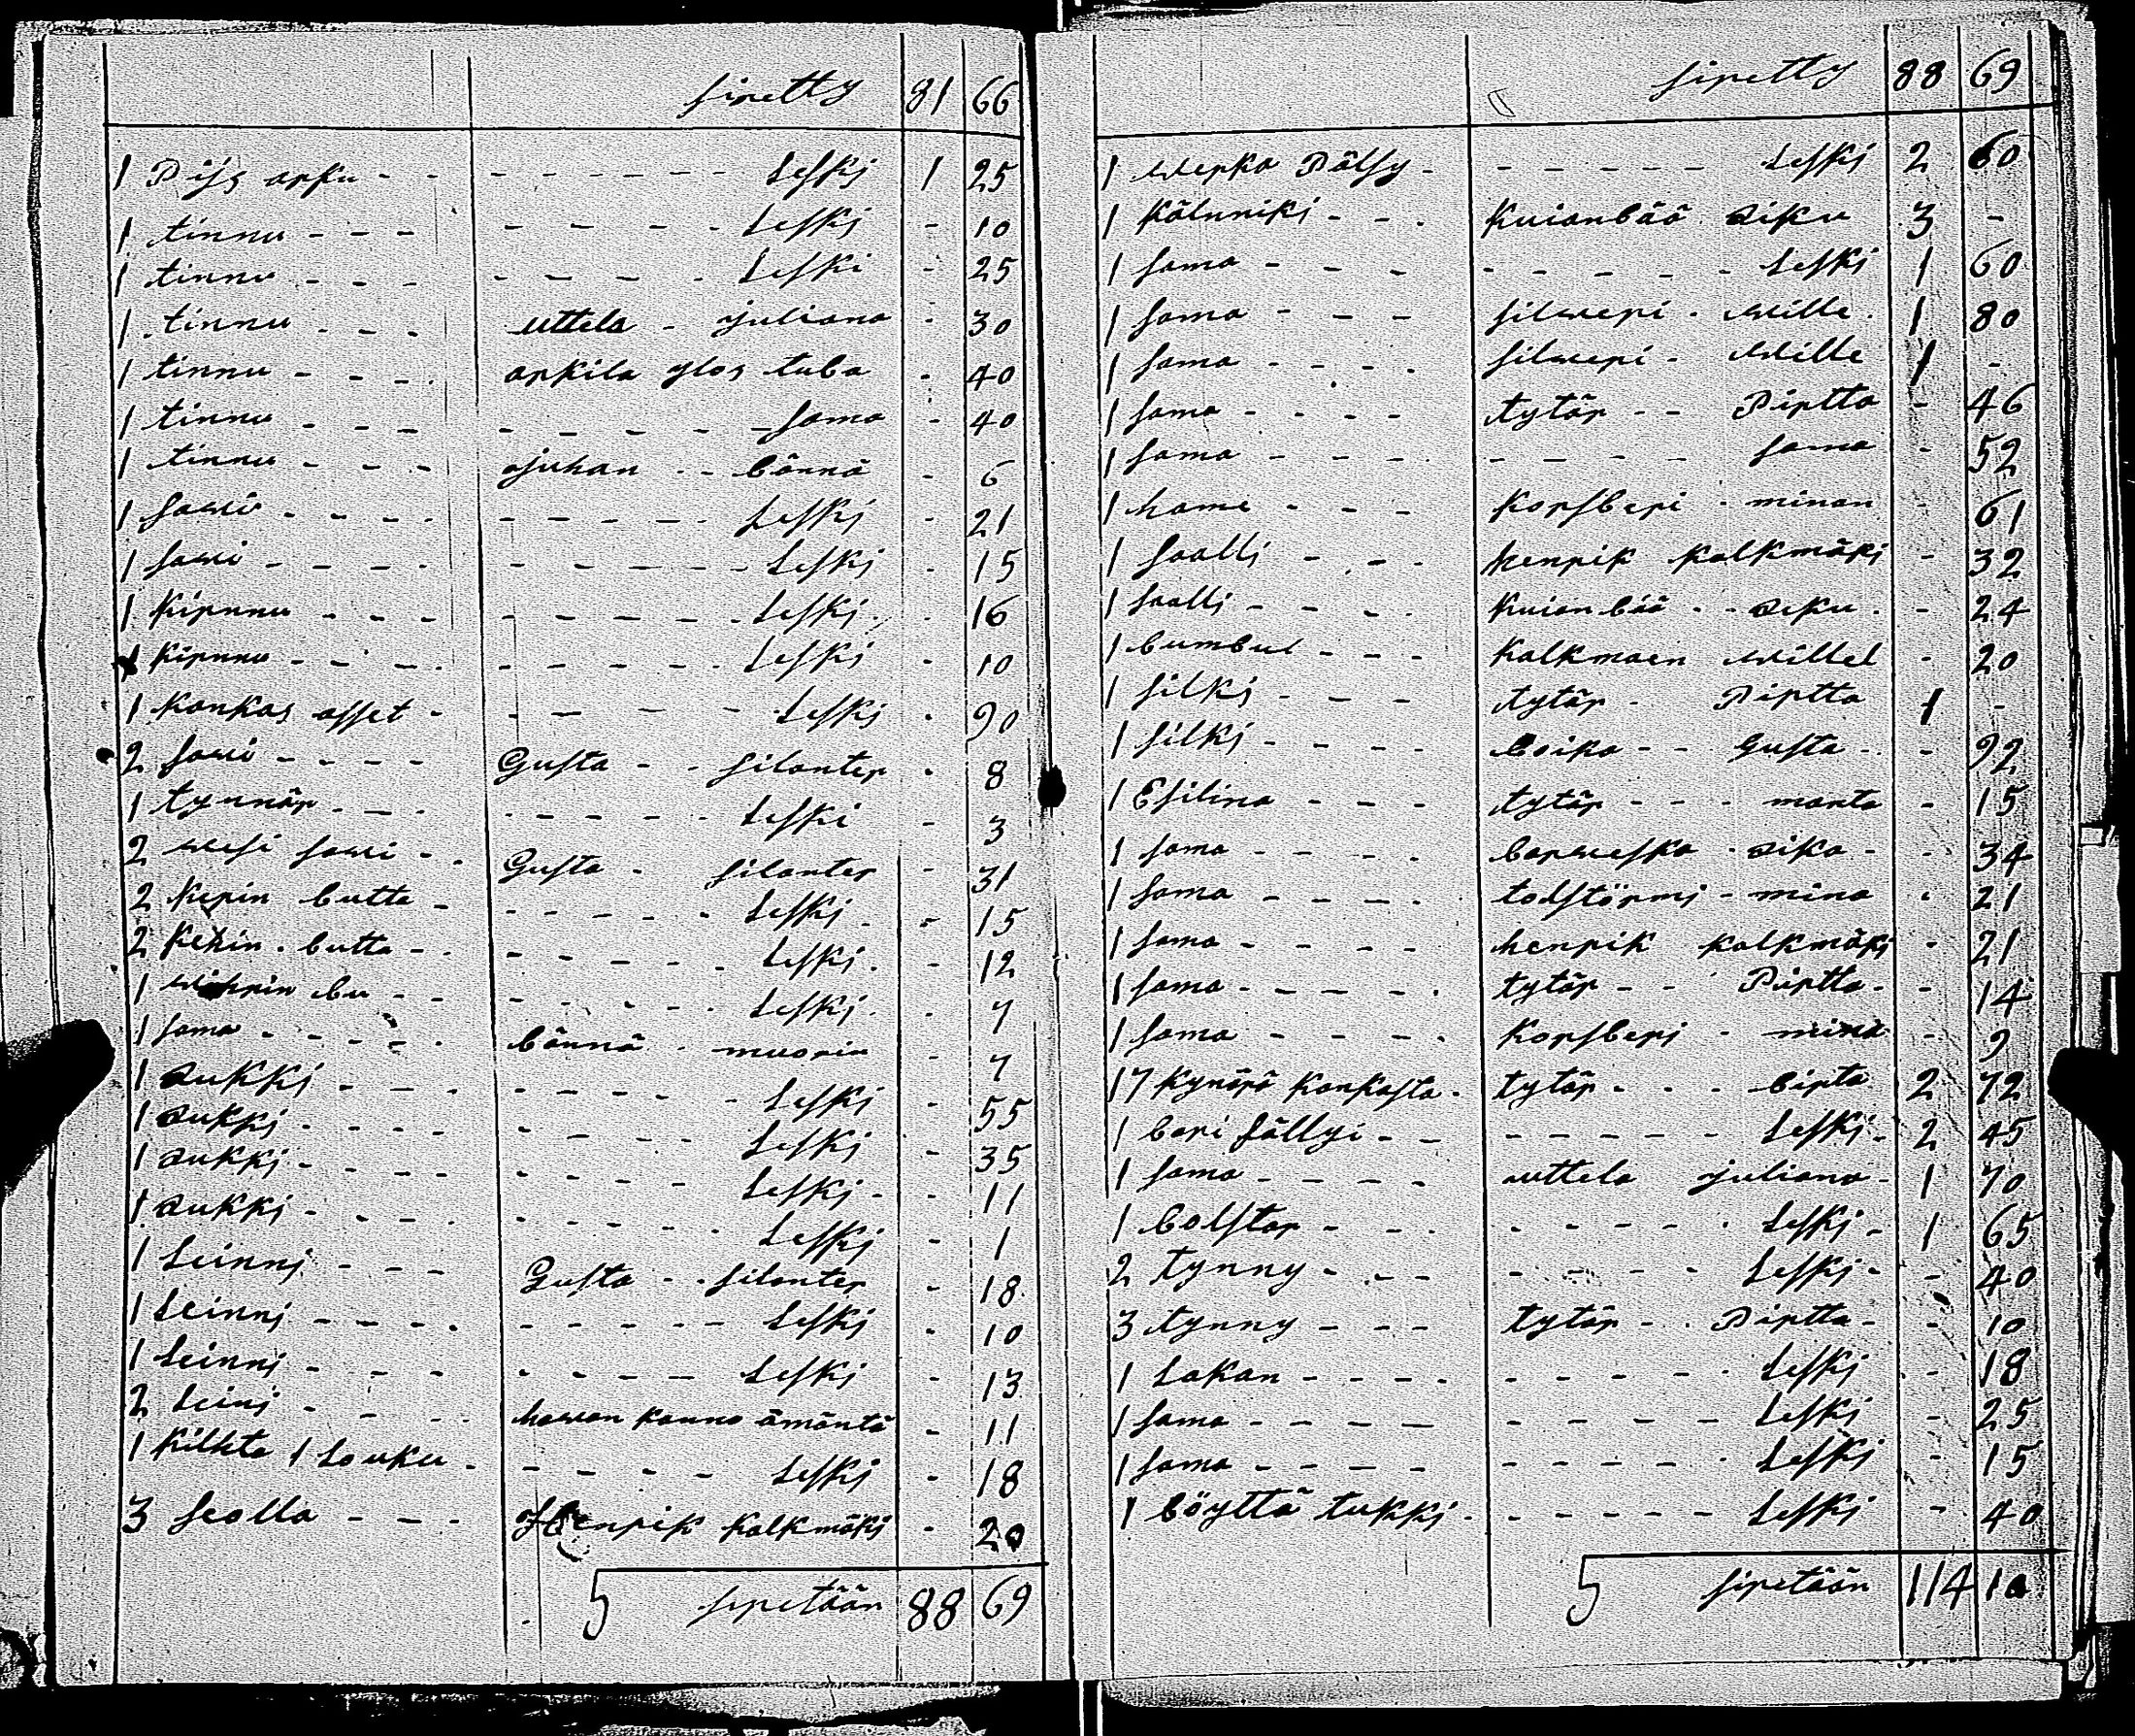 siretty 81 66
1 Pijs arku - - - - - - - - Leski 1 25
1 tinnu - - - - - - - - Leski - 10
1 tinnu - - - - - - - - Leski - 25
1 tinnu - - - uttela - juliana - 30
1 tinnu - - - - arkila ylos tuba - 40
1 tinnu - - - - - - - - sama - 40
1 tinnu - - - juhan - - bännä - 6
1 sawi - - - - - - - - - Leski - 21
1 sawi - - - - - - - - - Leski - 15
1 kirnnu - - - - - - - - Leski - 16
1 kirnnu - - - - - - - - Leski - 10
1 kankas asset - - - - - Leski - 90
2 sawi - - - - Gusta - - silanter - 8
1 tynnär - - - - - - - - Leski - 3
2 wesi sawi - - Gusta - silanter - 31
2 kerin butta - - - - - - Leski - 15
2 kehin butta - - - - - - Leski - 12
1 bu - - - - - - - Leski - 7
1 sama - - - - - bännä - muorin - 7
1 sukki - - - - - - - - Leski - 55
1 sukki - - - - - - - - Leski - 35
1 sukki - - - - - - - - Leski - 11
1 sukki - - - - - - - - Leski - 1
1 Leinni - - - Gusta - - silanter - 18
1 Leinni - - - - - - - - - Leski - 10
1 Leinni - - - - - - - - - Leski - 13
2 Leini - - - - hawan kanno ämäntä - 11
1 kilhta 1 Louku - - - - - Leski - 18
3 seolla - - - Henrik kalkmäki - 20
5 siretään 88 69
siretty 88 69
1 werka Pälsy - - - - - - Leski 2 60
1 kälnniki - - - kuianbää siku 3 -
1 sama - - - - - - - - - Leski 1 60
1 sama - - - silweri - wille 1 80
1 sama - - - - silweri - wille 1 -
1 sama - - - - tytär - - Pirtta - 46
1 sama - - - - - - - - sama - 52
1 hame - - - korsberi - minan - 61
1 saalli - - - henrik kalkmäki - 32
1 saalli - - - - kuian bää - - siku - 24
1 bumbul - - - kalkmaen willel - 20
1 silki - - - tytär - Pirtta 1 -
1 silki - - - - boika - - Gusta - 92
1 Esilina - - - tytär - - - manta - 15
1 sama - - - - barweska - sika - 34
1 sama - - - - tolstörmi - mina - 21
1 sama - - - - henrik kalkmäki - 21
1 sama - - - - - tytär - - Pirtta - 14
1 sama - - - - korsberi - mina - 9
17 kynärä kankasta - tytär - - - birta 2 72
1 bari sällyi - - - - - - - Leski - 2 45
1 sama - - - - uttela juliana - 1 70
1 bolstar - - - - - - - Leski - 1 65
2 tynny - - - - - - - - Leski - - 40
3 tynny - - - tytär - - Pirtta - - 10
1 Lakan - - - - - - - - Leski - 18
1 sama - - - - - - - - Leski - 25
1 sama - - - - - - - - Leski - 15
1 böyttä tukki - - - - - - Leski - 40
5 siretään 114 10